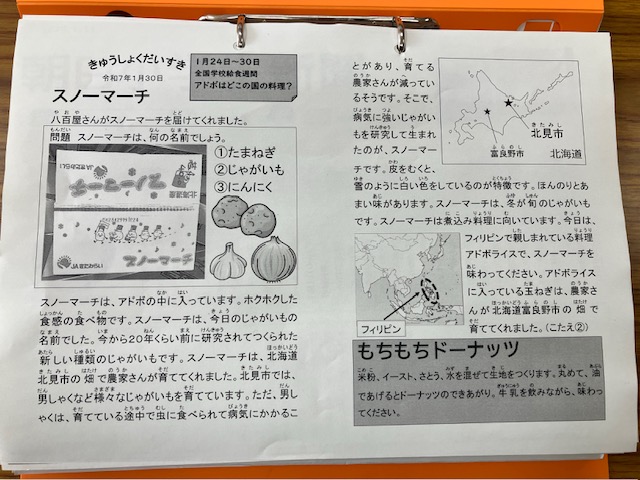 きゅうしょくだいすき
令和7年1月30日
1月24日～30日
全国学校給食週間
アドボはどこの国の料理？
スノーマーチ
八百屋さんがスノーマーチを届けてくれました。
問題 スノーマーチは、何の名前でしょう。
①たまねぎ
②じゃがいも
③にんにく
スノーマーチ
北海道産
JAきたみらい
スノーマーチ
スノーマーチは、アドボの中に入っています。ホクホクした
食感の食べ物です。スノーマーチは、今日のじゃがいもの
名前でした。今から20年くらい前に研究されてつくられた
新しい種類のじゃがいもです。スノーマーチは、北海道
北見市の畑で農家さんが育ててくれました。北見市では、
男しゃくなど様々なじゃがいもを育てています。ただ、男し
ゃくは、育てている途中で虫に食べられて病気にかかるこ
とがあり、育てる
農家さんが減ってい
るそうです。そこで、
病気に強いじゃがい
もを研究して生まれ
たのが、スノーマー
チです。皮をむくと、
北見市
富良野市
北海道
雪のように白い色をしているのが特徴です。ほんのりとあ
まい味があります。スノーマーチは、冬が旬のじゃがいも
です。スノーマーチは煮込み料理に向いています。今日は、
フィリピンで親しまれている料理
アドボライスで、スノーマーチを
味わってください。アドボライス
に入っている玉ねぎは、農家さ
んが北海道富良野市の畑で
育ててくれました。（こたえ②）
フィリピン
もちもちドーナッツ
米粉、イースト、さとう、水を混ぜて生地をつくります。丸めて、油
であげるとドーナッツのできあがり。牛乳を飲みながら、味わっ
てください。